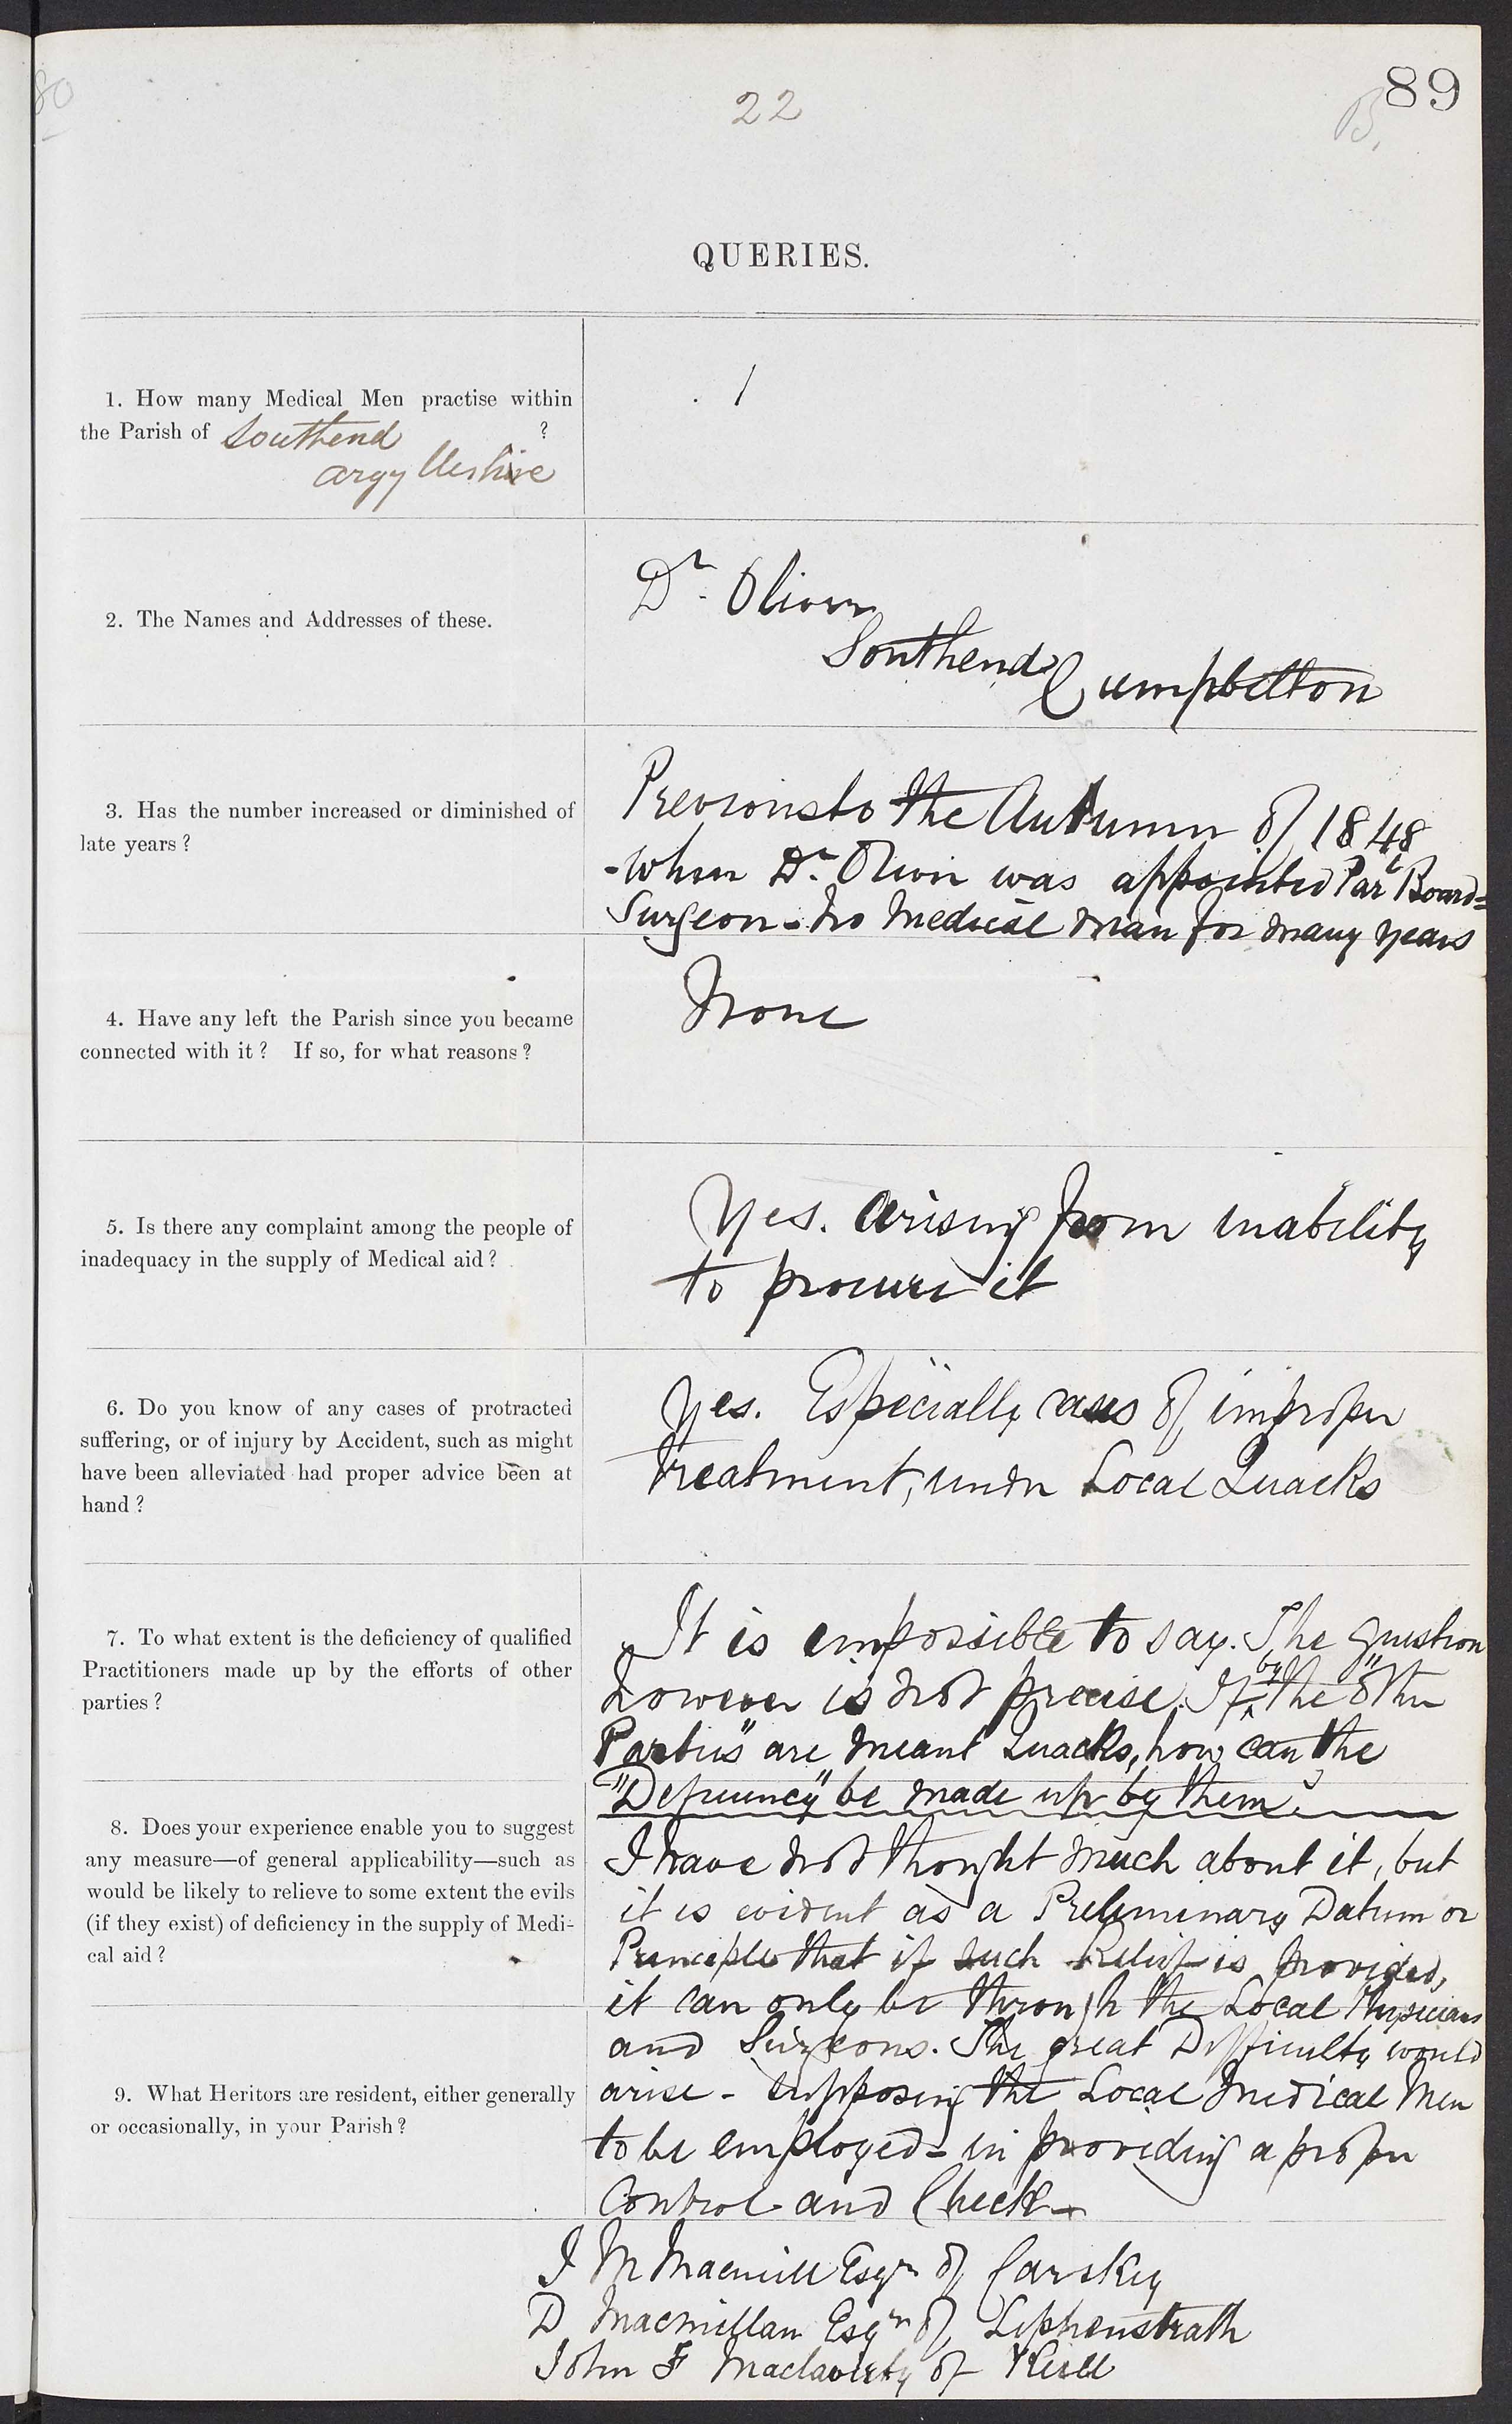 80
22
B.
89
QUERIES.
1. How many Medical Men practise within
the Parish of Southend ?
Argyllshire
1
2. The Names and Addresses of these.
Dr. Oliver
Southend
Campbelton
3. Has the number increased or diminished of
late years?
Previous to the Autumn of 1848
- when Dr. Oliver was appointed Parl Board =
Surgeon - no Medical man for many years
4. Have any left the Parish since you became
connected with it? If so, for what reasons?
None
5. Is there any complaint among the people of
inadequacy in the supply of Medical aid?
Yes. Arising from inability
to procure it
6. Do you know of any cases of protracted
suffering, or of injury by Accident, such as might
have been alleviated had proper advice been at
hand?
Yes. Especially cases of improper
treatment, under Local Quacks
7. To what extent is the deficiency of qualified
Practitioners made up by the efforts of other
parties?
It is impossible to say. The Question
however is not precise. If by the "other
Parties" are meant Quacks, how can the
"Deficiency" be made up by them?
8. Does your experience enable you to suggest
any measure—of general applicability—such as
would be likely to relieve to some extent the evils
(if they exist) of deficiency in the supply of Medi-
cal aid?
I have not thought much about it, but
it is evident as a Preliminary Datum or
Principle that if such Relief is provided,
it can only be through the Local Physicians
and Surgeons. The great Difficulty would
arise - supposing the Local Medical Men
to be employed - in providing a proper
Control and Check -
9. What Heritors are resident, either generally
or occasionally, in your Parish?
J M Macneill Esqr of Carskey
D Macmillan Esqr of Lephenstrath
John F Maclaverty of Keill